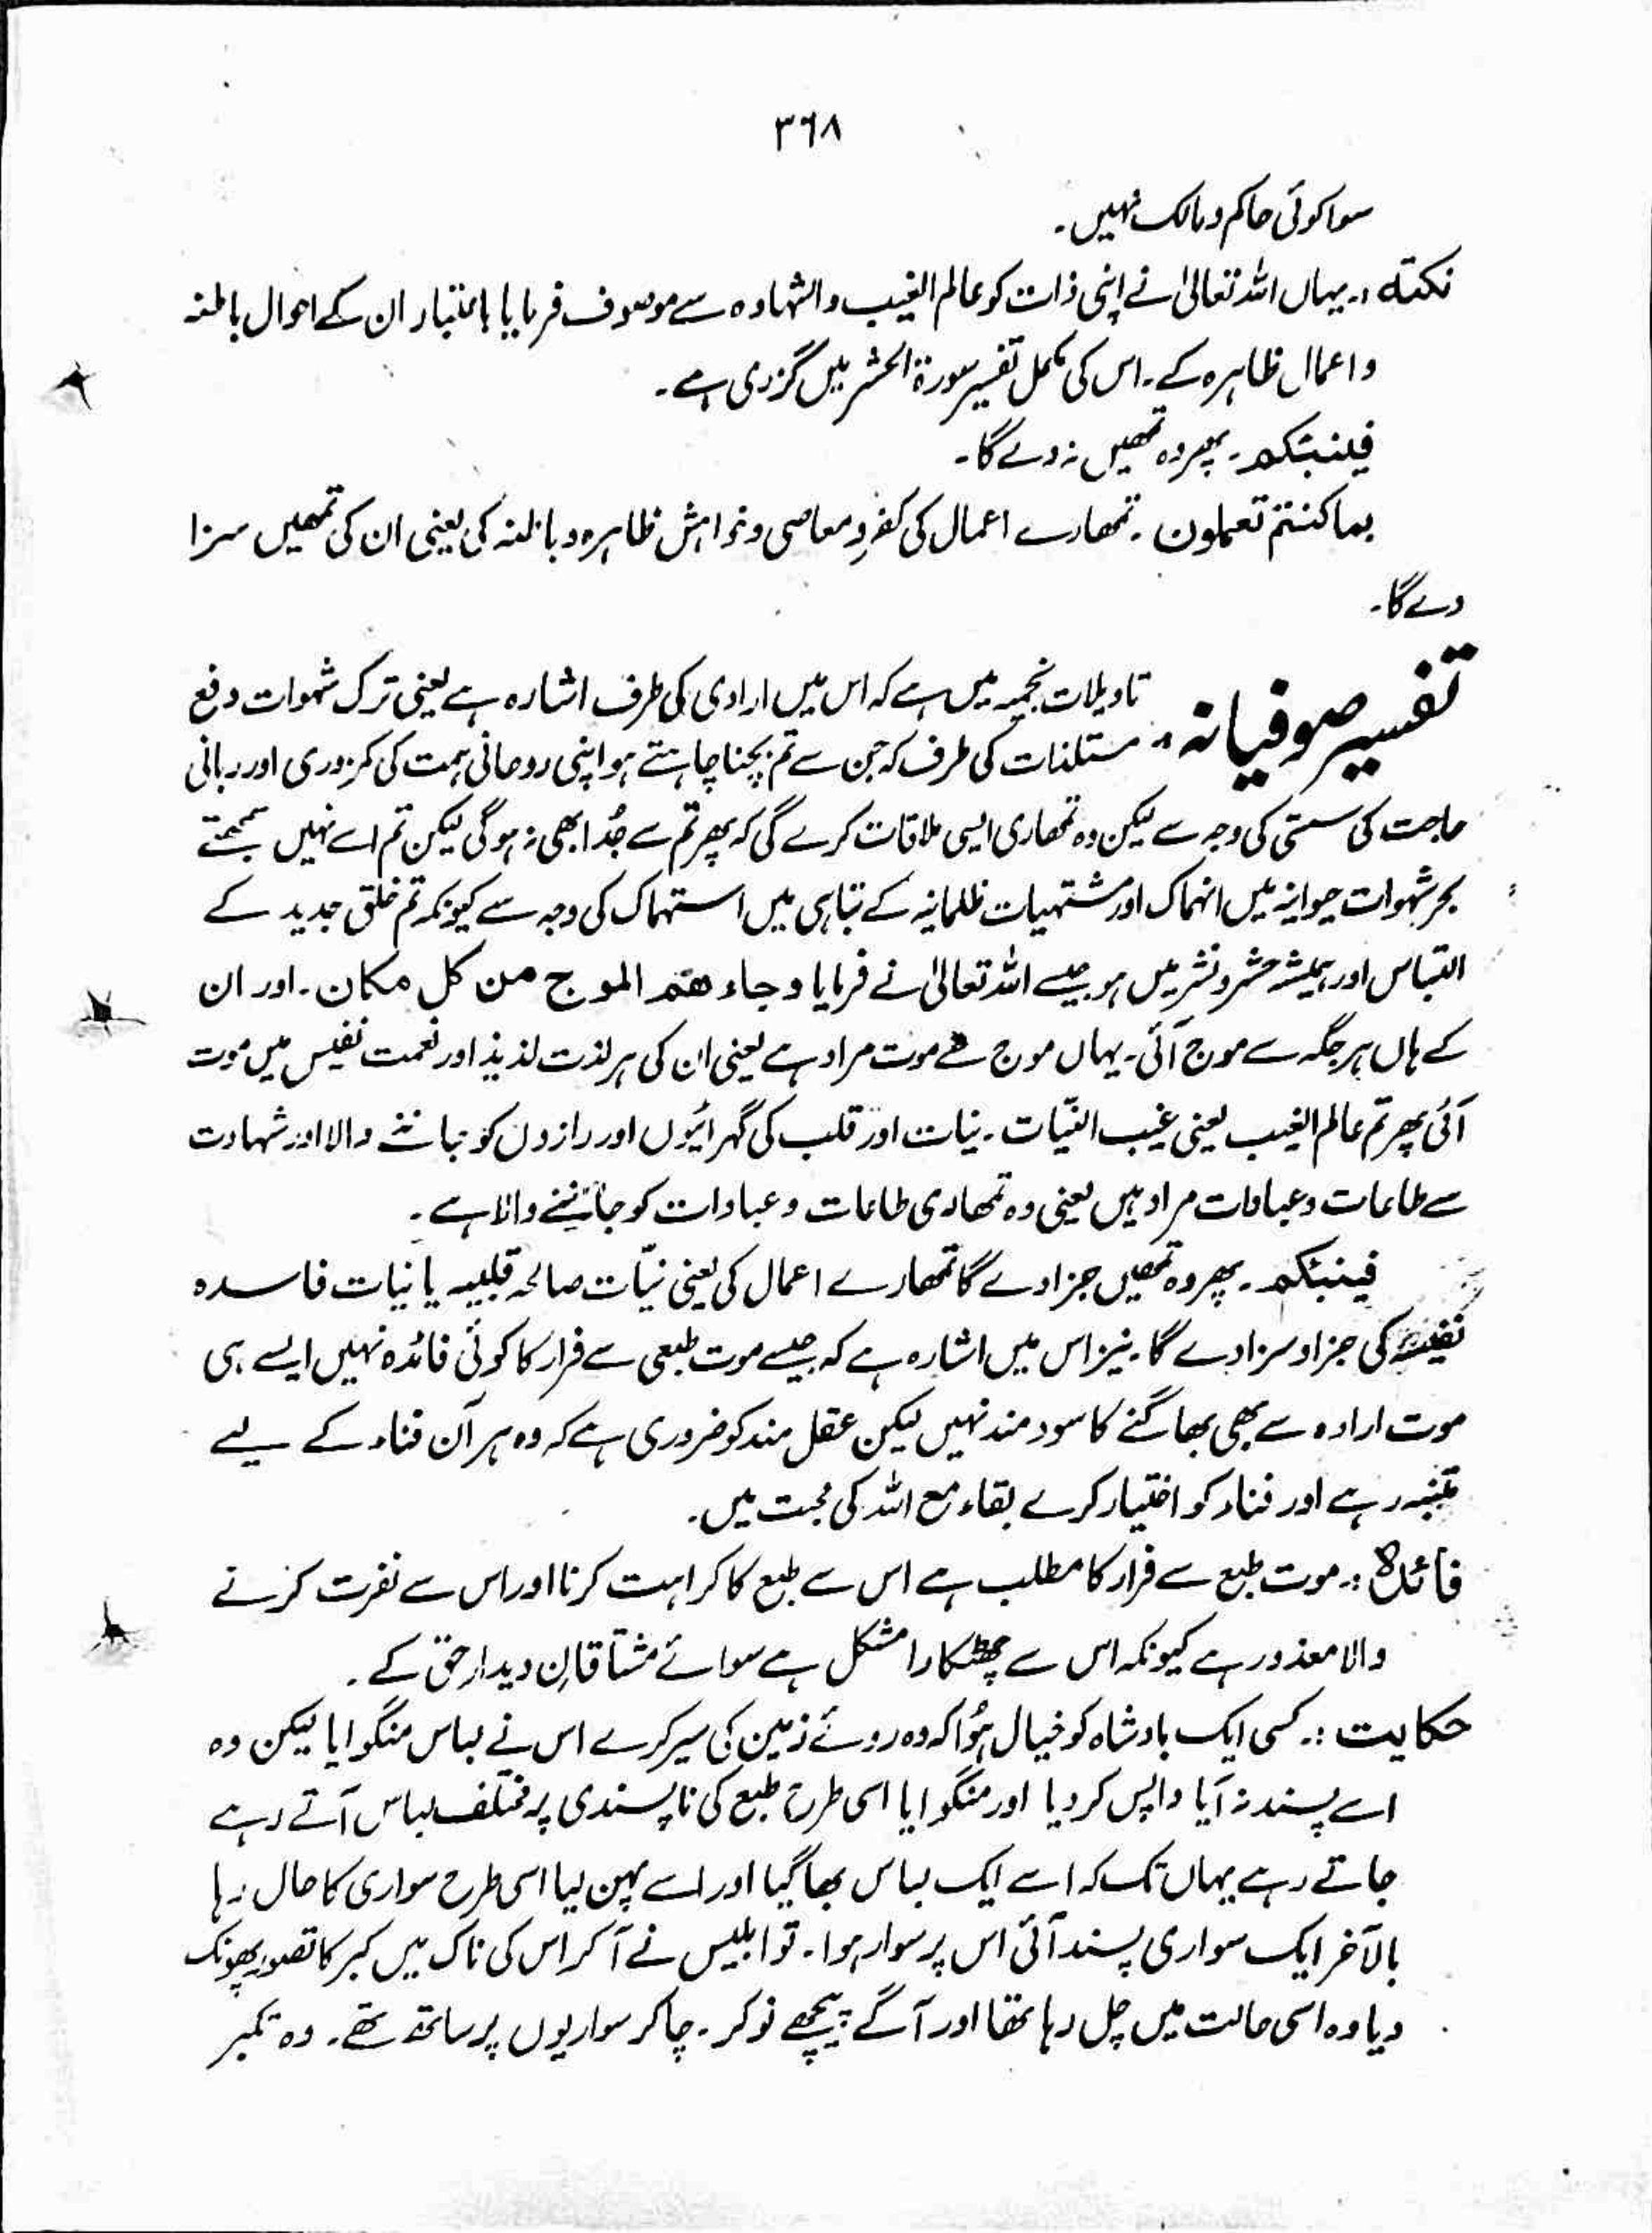 ٣٦٨
سوا کوئی حاکم و مالک نہیں۔
نکتہ :۔ یہاں اللہ تعالیٰ نے اپنی ذات کو عالم الغیب والشہادہ سے موصوف فرمایا باعتبار ان کے احوال باطنہ
و اعمال ظاہرہ کے۔ اس کی مکمل تفسیر سورۃ الحشر میں گزری ہے۔
فینبئکم۔ پھر وہ تمھیں نہ دے گا۔
بما کنتم تعملون۔ تمھارے اعمال کی کفر و معاصی و خواہش ظاہرہ و باطنہ کی یعنی ان کی تمھیں سزا
دے گا۔
تفسیر صوفیانہ :۔ تاویلات نجمیہ میں ہے کہ اس میں ارادی کی طرف اشارہ ہے یعنی ترک شہوات دفع
مستلذات کی طرف کہ جن سے تم بچنا چاہتے ہو اپنی روحانی ہمت کی کمزوری اور ربانی
حاجت کی سستی کی وجہ سے لیکن وہ تمھاری ایسی ملاقات کرے گی کہ پھر تم سے جُدا بھی نہ ہو گی لیکن تم اسے نہیں سمجھتے
بحر شہوات حیوانیہ میں انہماک اور مشتہیات ظلمانیہ کے تباہی میں استہماک کی وجہ سے کیونکہ تم خلق جدید کے
التباس اور ہمیشہ حشر و نشر میں ہو جیسے اللہ تعالیٰ نے فرمایا وجاءھم الموج من کل مکان۔ اور ان
کے ہاں ہر جگہ سے موج آئی۔ یہاں موج سے موت مراد ہے یعنی ان کی ہر لذت لذیذ اور نعمت نفیس میں موت
آئی پھر تم عالم الغیب یعنی غیب النیّات۔ نیات اور قلب کی گہرائیوں اور رازوں کو جاننے والا اور شہادت
سے طاعات و عبادات مراد ہیں یعنی وہ تمھاری طاعات و عبادات کو جاننے والا ہے۔
فینبئکم۔ پھر وہ تمھیں جزا دے گا تمھارے اعمال کی یعنی نیّات صالحہ قلبیہ یا نیات فاسدہ
نفسیہ کی جزا و سزا دے گا۔ نیز اس میں اشارہ ہے کہ جیسے موت طبعی سے فرار کا کوئی فائدہ نہیں ایسے ہی
موت ارادہ سے بھی بھاگنے کا سود مند نہیں لیکن عقل مند کو ضروری ہے کہ وہ ہر آن فناء کے لیے
متنبہ رہے اور فناء کو اختیار کرے بقاء مع اللہ کی محبت میں۔
فائدہ :۔ موت طبع سے فرار کا مطلب ہے اس سے طبع کا کراہت کرنا اور اس سے نفرت کرنے
والا معذور ہے کیونکہ اس سے چھٹکارا مشکل ہے سوائے مشتاقانِ دیدار حق کے۔
حکایت :۔ کسی ایک بادشاہ کو خیال ہُوا کہ وہ روئے زمین کی سیر کرے اس نے لباس منگوایا لیکن وہ
اسے پسند نہ آیا واپس کر دیا اور منگوایا اسی طرح طبع کی ناپسندی پر مختلف لباس آتے رہے
جاتے رہے یہاں تک کہ اسے ایک لباس بھا گیا اور اسے پہن لیا اسی طرح سواری کا حال رہا
بالآخر ایک سواری پسند آئی اس پر سوار ہوا۔ تو ابلیس نے آ کر اس کی ناک میں کبر کا تصور پھونک
دیا وہ اسی حالت میں چل رہا تھا اور آگے پیچھے نوکر۔ چاکر سواریوں پر ساتھ تھے۔ وہ تکبر